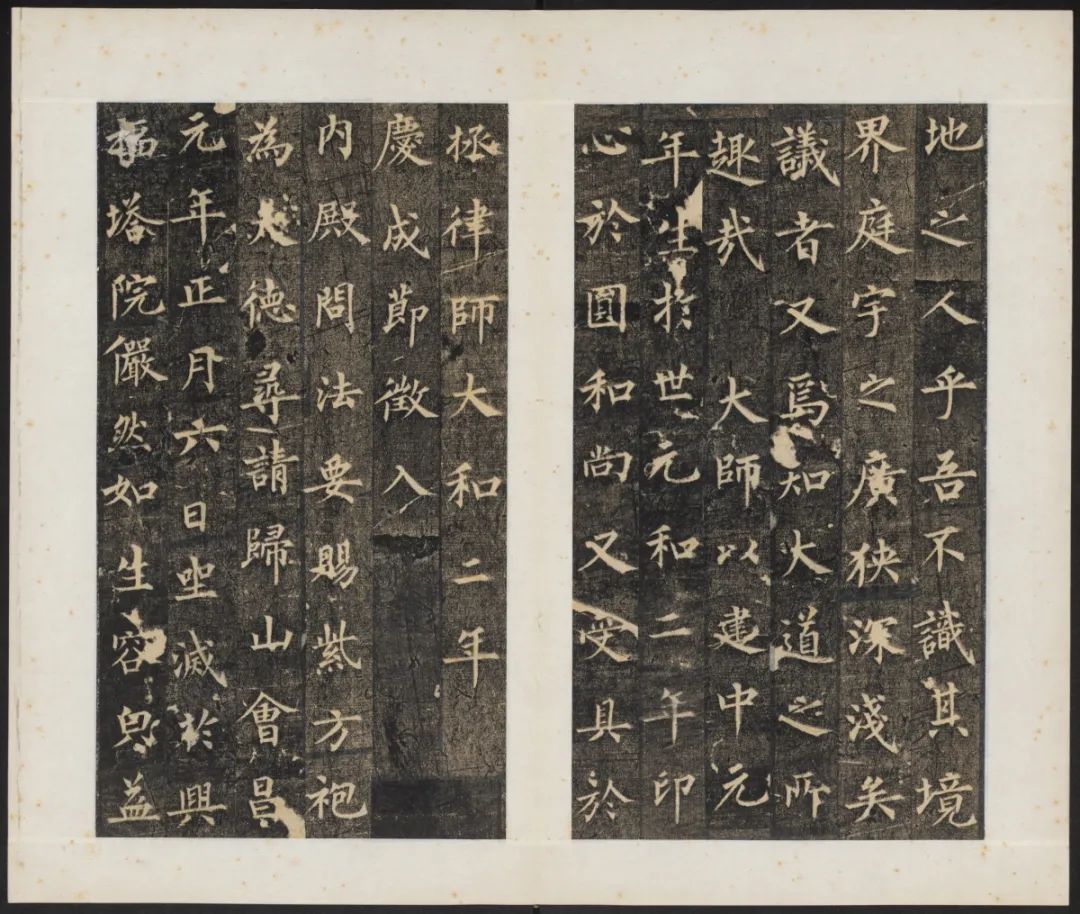 地之人乎吾不識其境
界庭宇之廣狹深淺矣
議者又焉知大道之所
趣哉　大師以建中元
年生於世元和二年印
心於圓和尚又受具於
拯律師大和二年
慶成節徵入
內殿問法要賜紫方袍
為大德尋請歸山會昌
元年正月六日坐滅於興
福塔院儼然如生容皃益